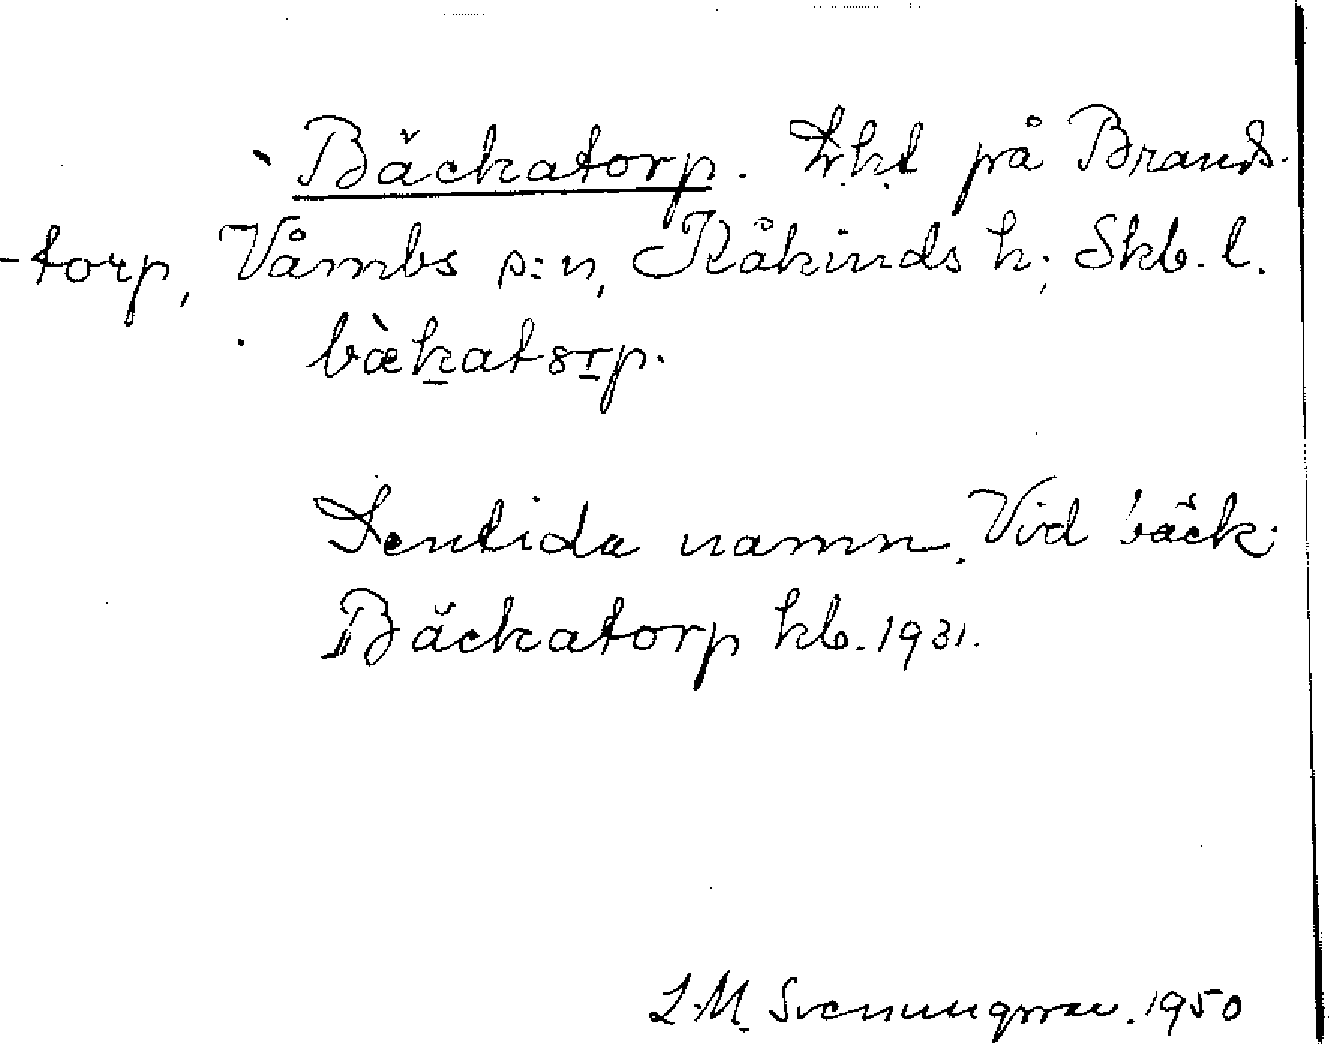 Bäckatorp. Lht på Brands-
torp, Våmbs s:n, Kåkinds h; Skb. l.
bàkatorp.
Sentida namn. Vid bäck.
Bäckatorp kb. 1931.
L.M. Svenungsson. 1950